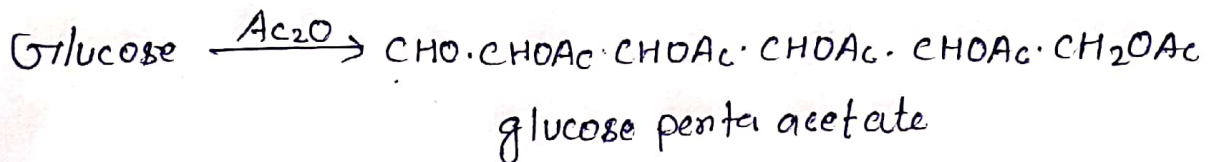 Glucose Ac₂O → CHO.CHOAc.CHOAc.CHOAc.CHOAc.CH₂OAc
glucose penta acetate